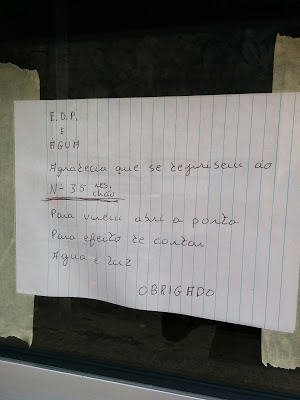 E.D.P.
E
ÁGUA
Agradecia que se dirijisem ao
Nº 35 res. chão
Para virem abrir a porta
Para efeito de contar
Água e luz
OBRIGADO